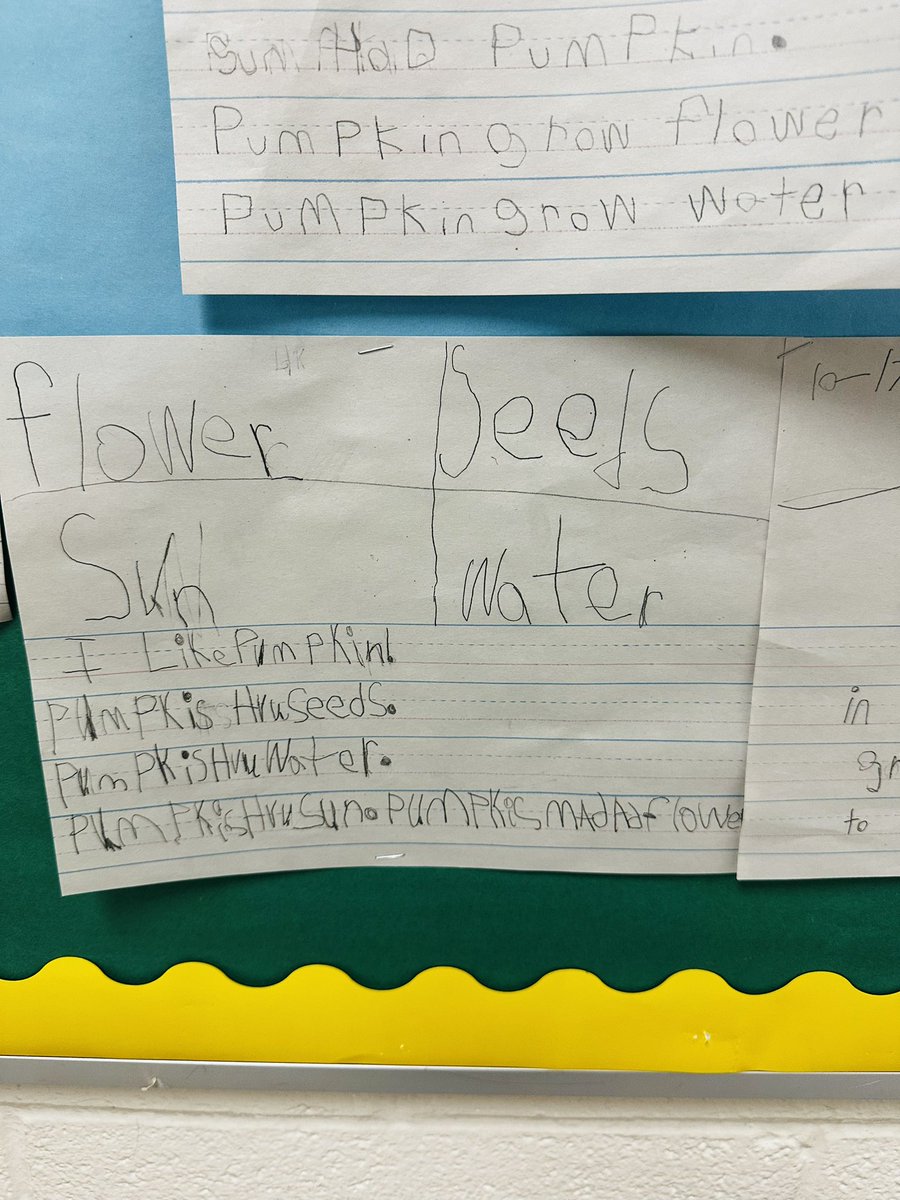 Sum HaD PumPkin.
PumPkin grow flower
PumPkin grow water
flower Seeds
Sun water
I LikePumPkin!
PumPkisHruSeeds.
PumPkisHruWater.
PumPkisHruSun.PumPkismAdAdflowe
10-17
in
gr
to